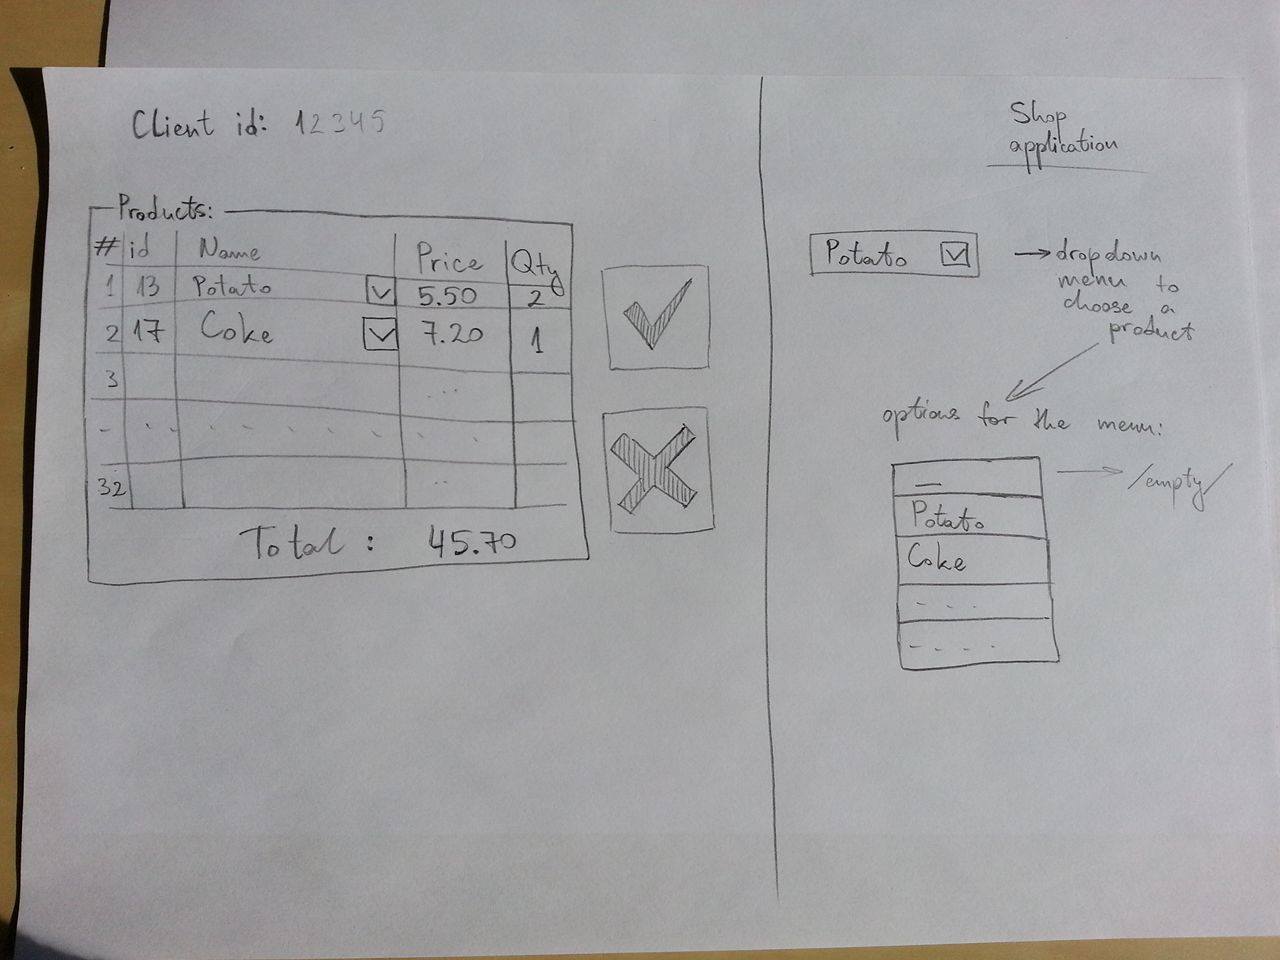 Client id: 12345
Products:
# id Name Price Qty
1 13 Potato 5.50 2
2 17 Coke 7.20 1
3 ...
- . . . . . . . . .
32 ..
Total : 45.70
Shop
application
Potato → dropdown
menu to
choose a
product
options for the menu:
— → /empty/
Potato
Coke
- - - -
- - - -